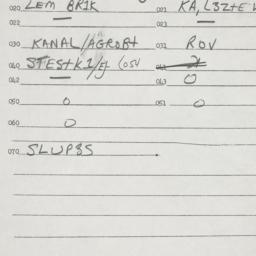 020 LEM BRIK 021 KA, L32+E
022 023
030 KANAL/AGROB+ 031 ROV
040 STEST+K1/EJ (OSV
042 043 0
050 0 051 0
060 0
070 SLUPSS .